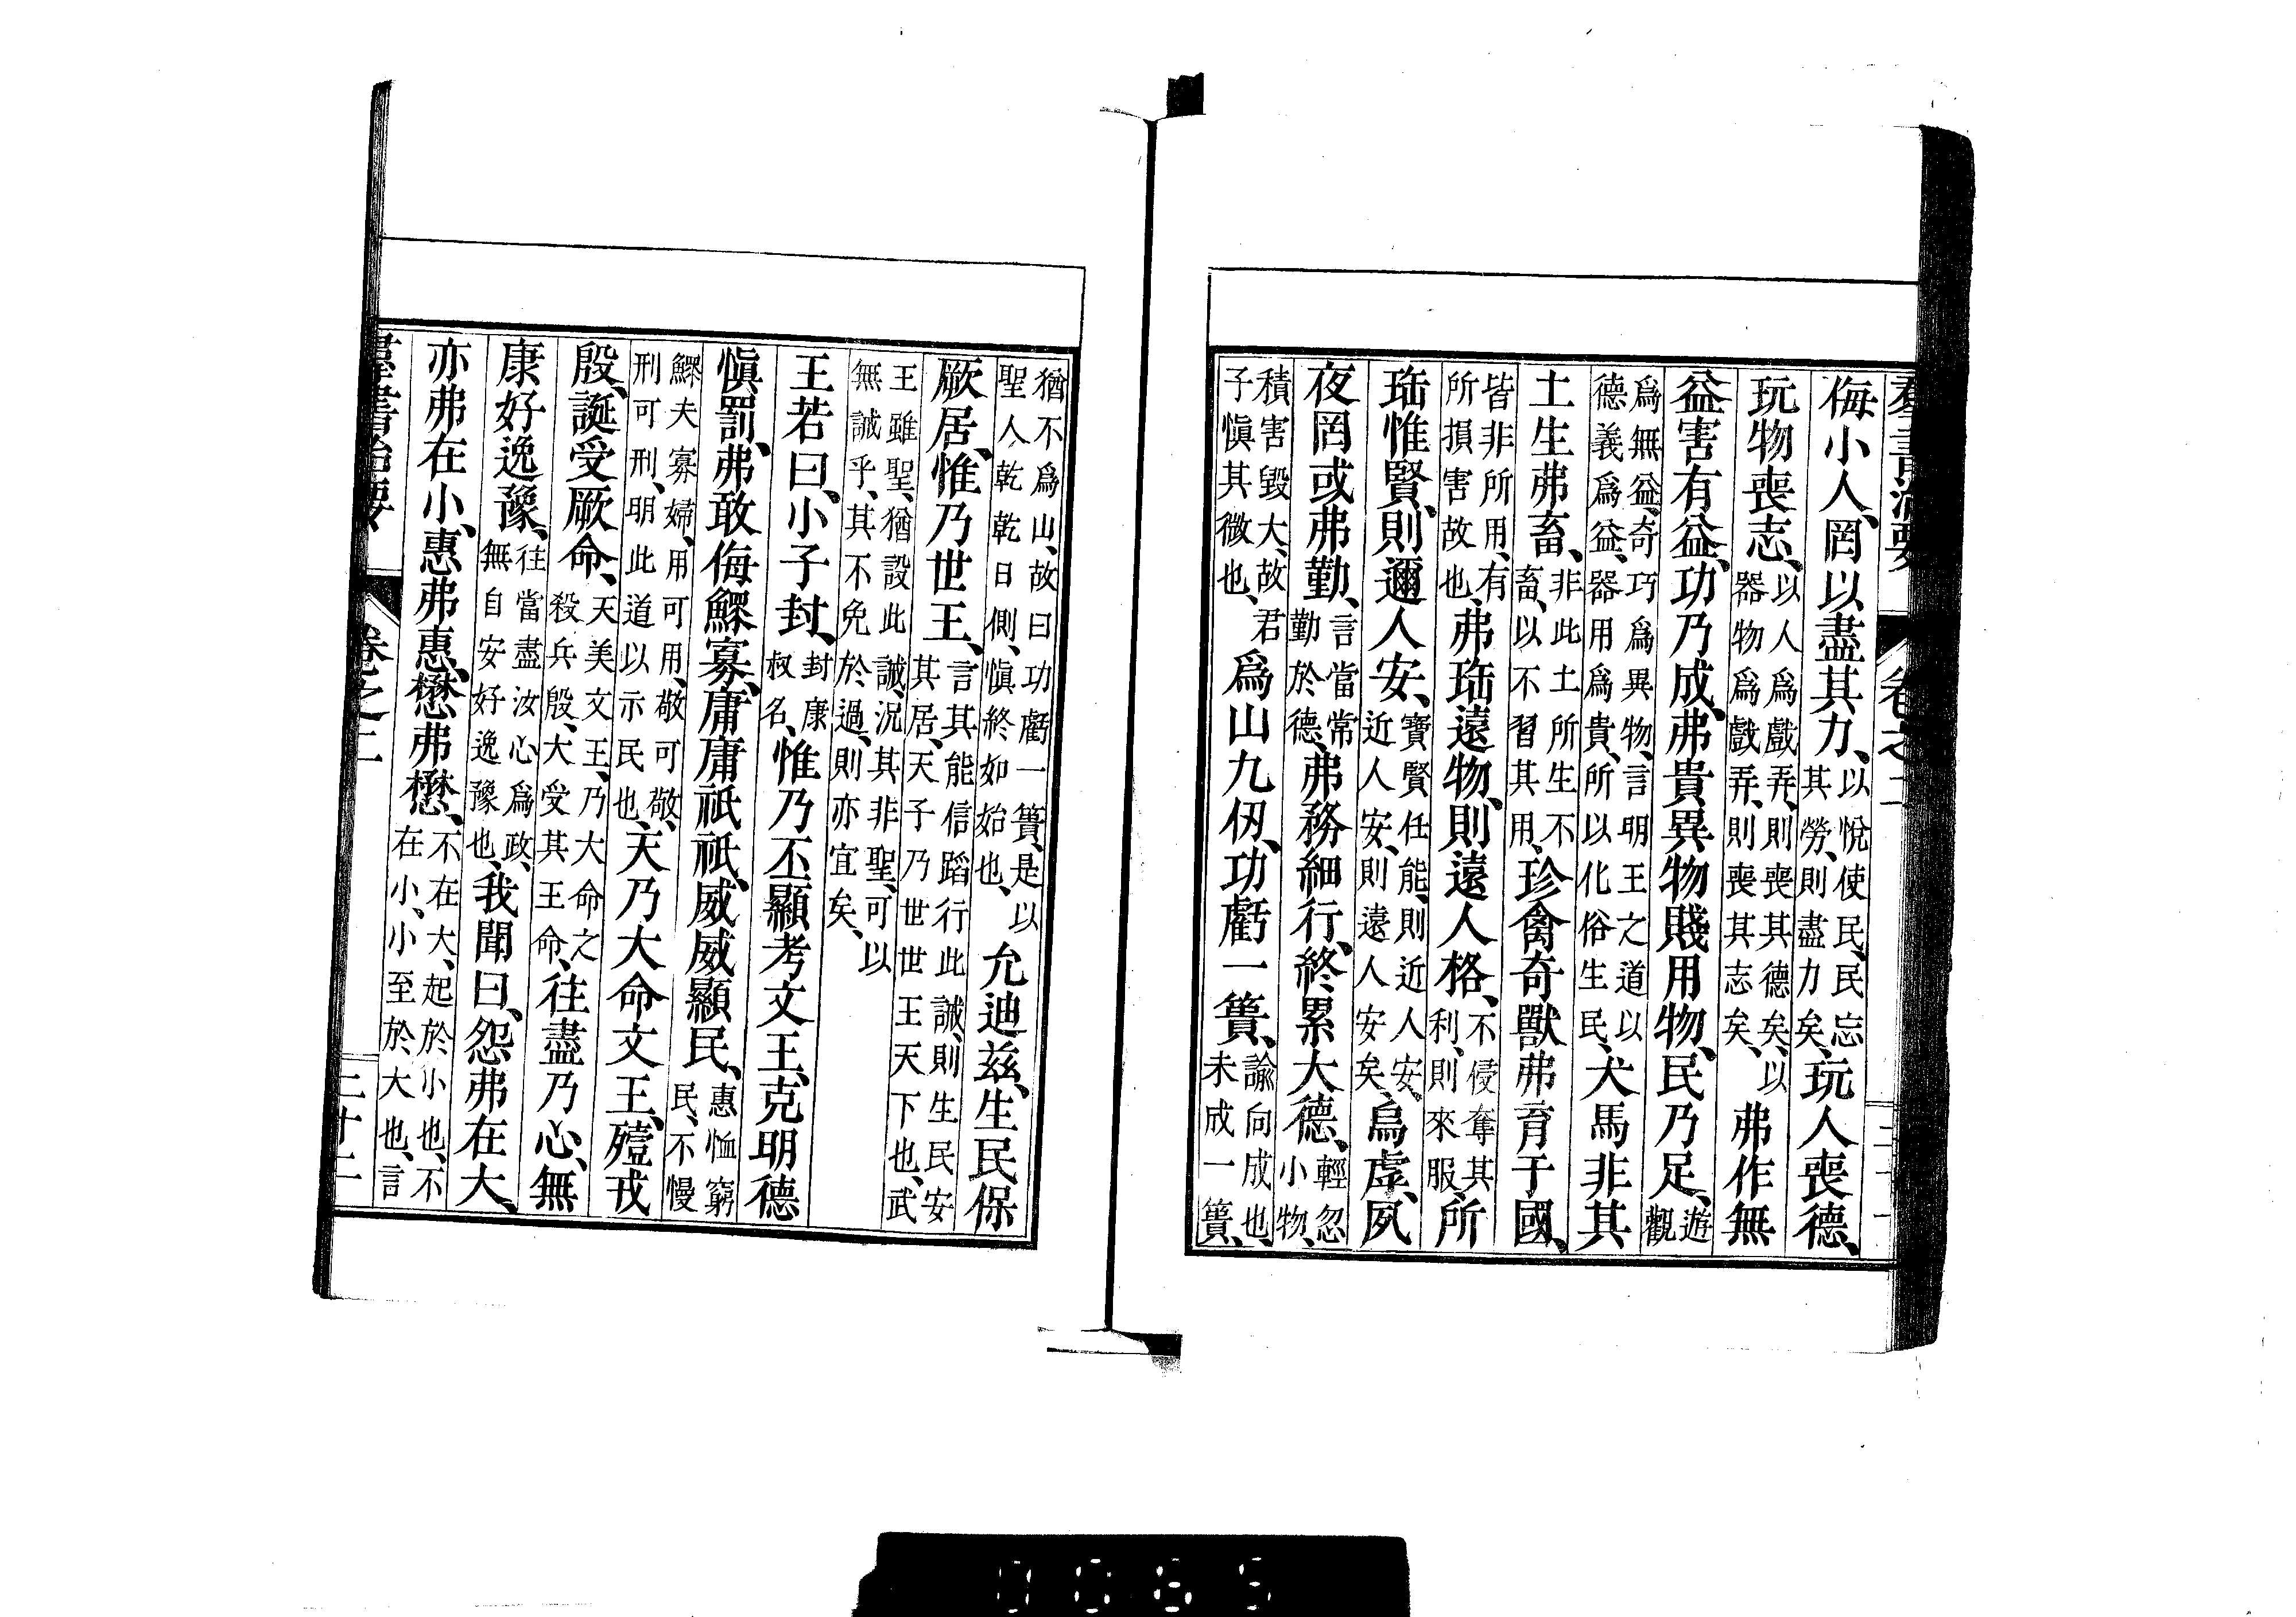 羣書治要 卷之二 三十一
侮小人、罔以盡其力、以悅使民、民忘其勞、則盡力矣、玩人喪德、
玩物喪志、以人爲戲弄、則喪其德矣、以器物爲戲弄、則喪其志矣、弗作無
益害有益、功乃成、弗貴異物賤用物、民乃足、遊觀
爲無益、奇巧爲異物、言明王之道以德義爲益、器用爲貴、所以化俗生民、犬馬非其
土生弗畜、非此土所生不畜、以不習其用、珍禽奇獸弗育于國、
皆非所用、有所損害故也、弗珤遠物、則遠人格、不侵奪其利、則來服、所
珤惟賢、則邇人安、寶賢任能、則近人安、近人安、則遠人安矣、烏虖、夙
夜罔或弗勤、言當常勤於德、弗務細行、終累大德、輕忽小物、
積害毀大、故君子愼其微也、爲山九仞、功虧一簣、諭向成也、未成一簣、
猶不爲山、故曰功虧一簣、是以聖人乾乾日側、愼終如始也、允迪茲、生民保
厥居、惟乃世王、言其能信蹈行此誡、則生民安其居、天子乃世世王天下也、武
王雖聖、猶設此誡、況其非聖、可以無誡乎、其不免於過、則亦宜矣、
王若曰、小子封、封康叔名、惟乃丕顯考文王、克明德
愼罰、弗敢侮鰥寡、庸庸祇祇、威威顯民、惠恤窮民、不慢
鰥夫寡婦、用可用、敬可敬、刑可刑、明此道以示民也、天乃大命文王、殪戎
殷、誕受厥命、天美文王、乃大命之殺兵殷、大受其王命、往盡乃心、無
康好逸豫、往當盡汝心爲政、無自安好逸豫也、我聞曰、怨弗在大、
亦弗在小、惠弗惠、懋弗懋、不在大、起於小也、不在小、小至於大也、言
羣書治要 卷之二 三十二